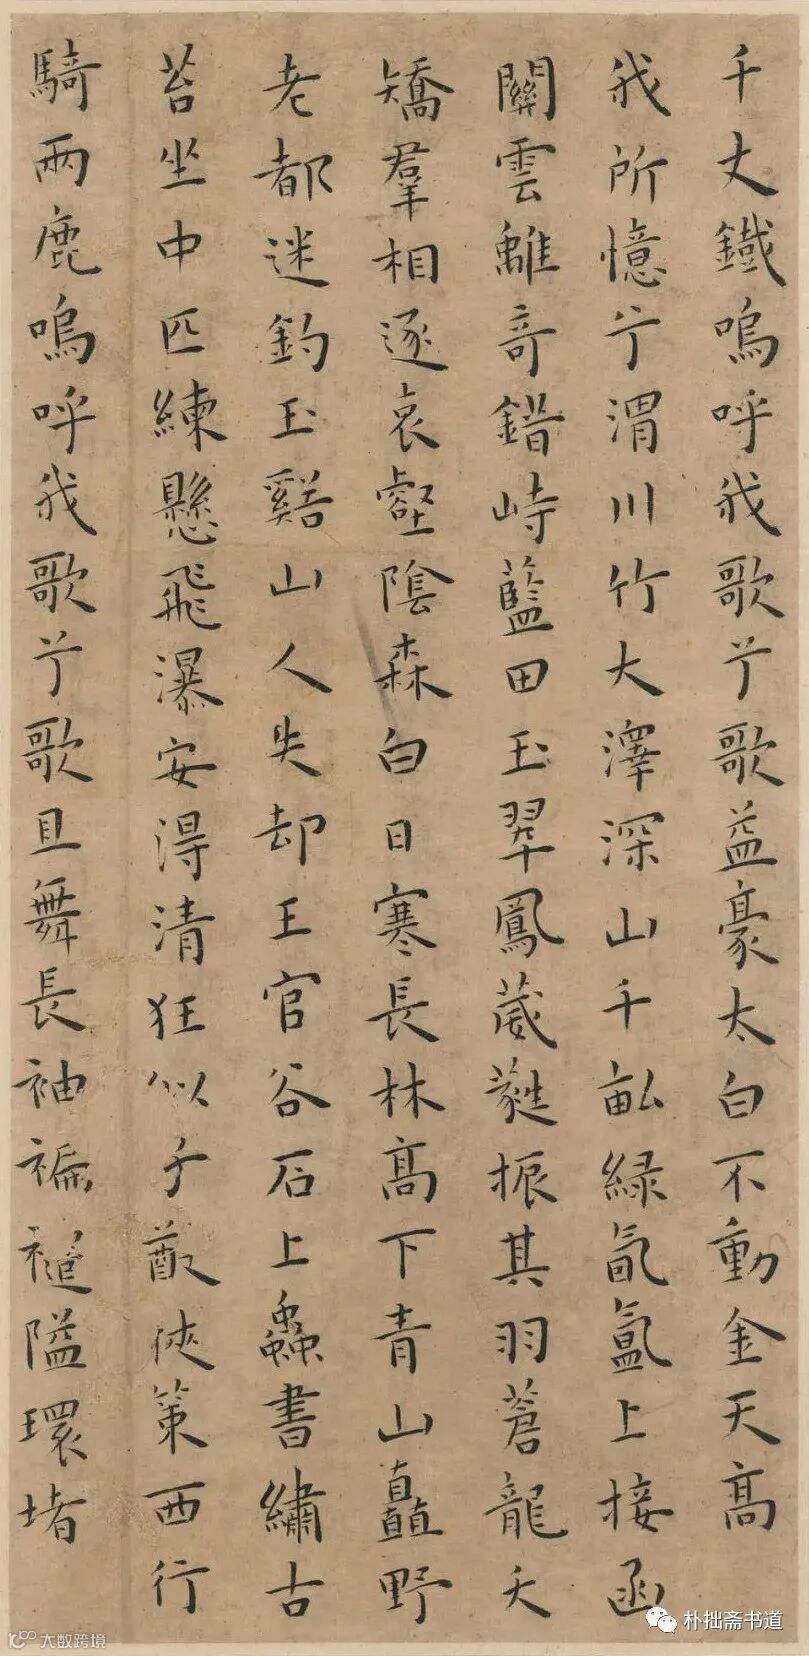 千丈鐵嗚呼我歌兮歌益豪太白不動金天高
我所憶兮渭川竹大澤深山千畝緑氤氳上接函
關雲離奇錯峙藍田玉翠鳳葳蕤振其羽蒼龍夭
矯羣相逐哀壑陰森白日寒長林髙下青山矗野
老都迷釣玉谿山人失却王官谷石上蟲書繡古
苔坐中匹練懸飛瀑安得清狂似子猷俠策西行
騎兩鹿嗚呼我歌兮歌且舞長袖褊褼隘環堵
朴拙斋书道
大数跨境